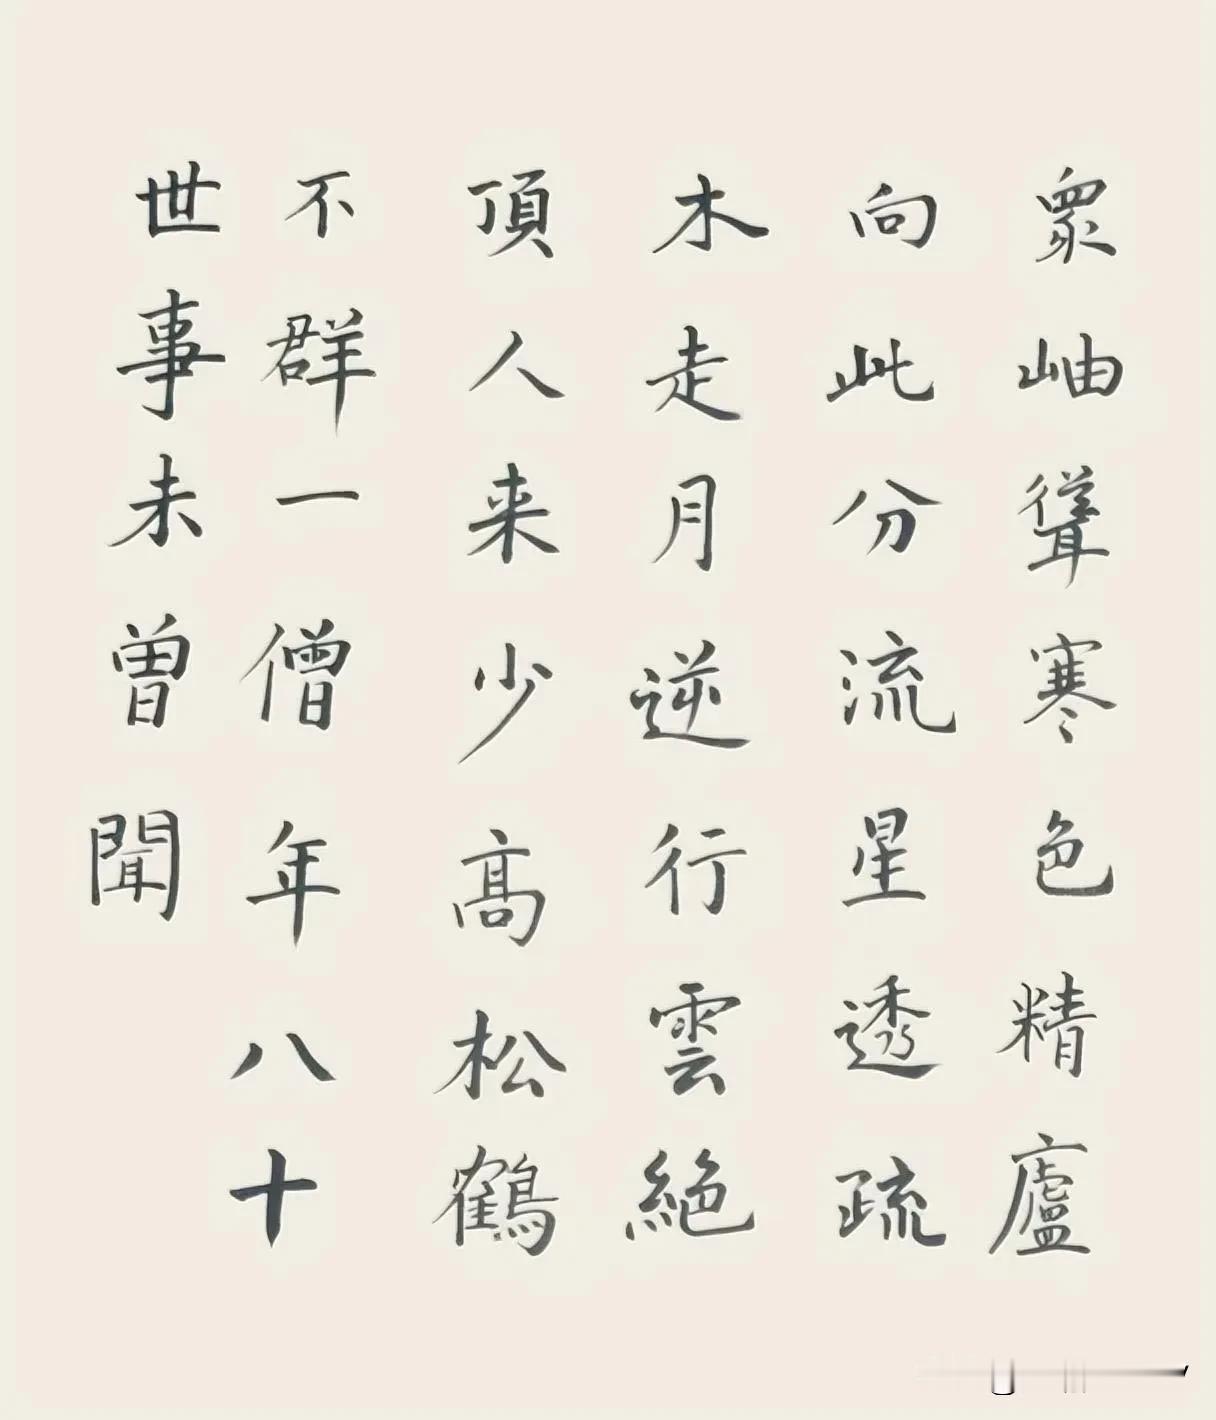 眾岫聳寒色精廬
向此分流星透疏
木走月逆行雲絕
頂人来少高松鶴
不群一僧年八十
世事未曽聞